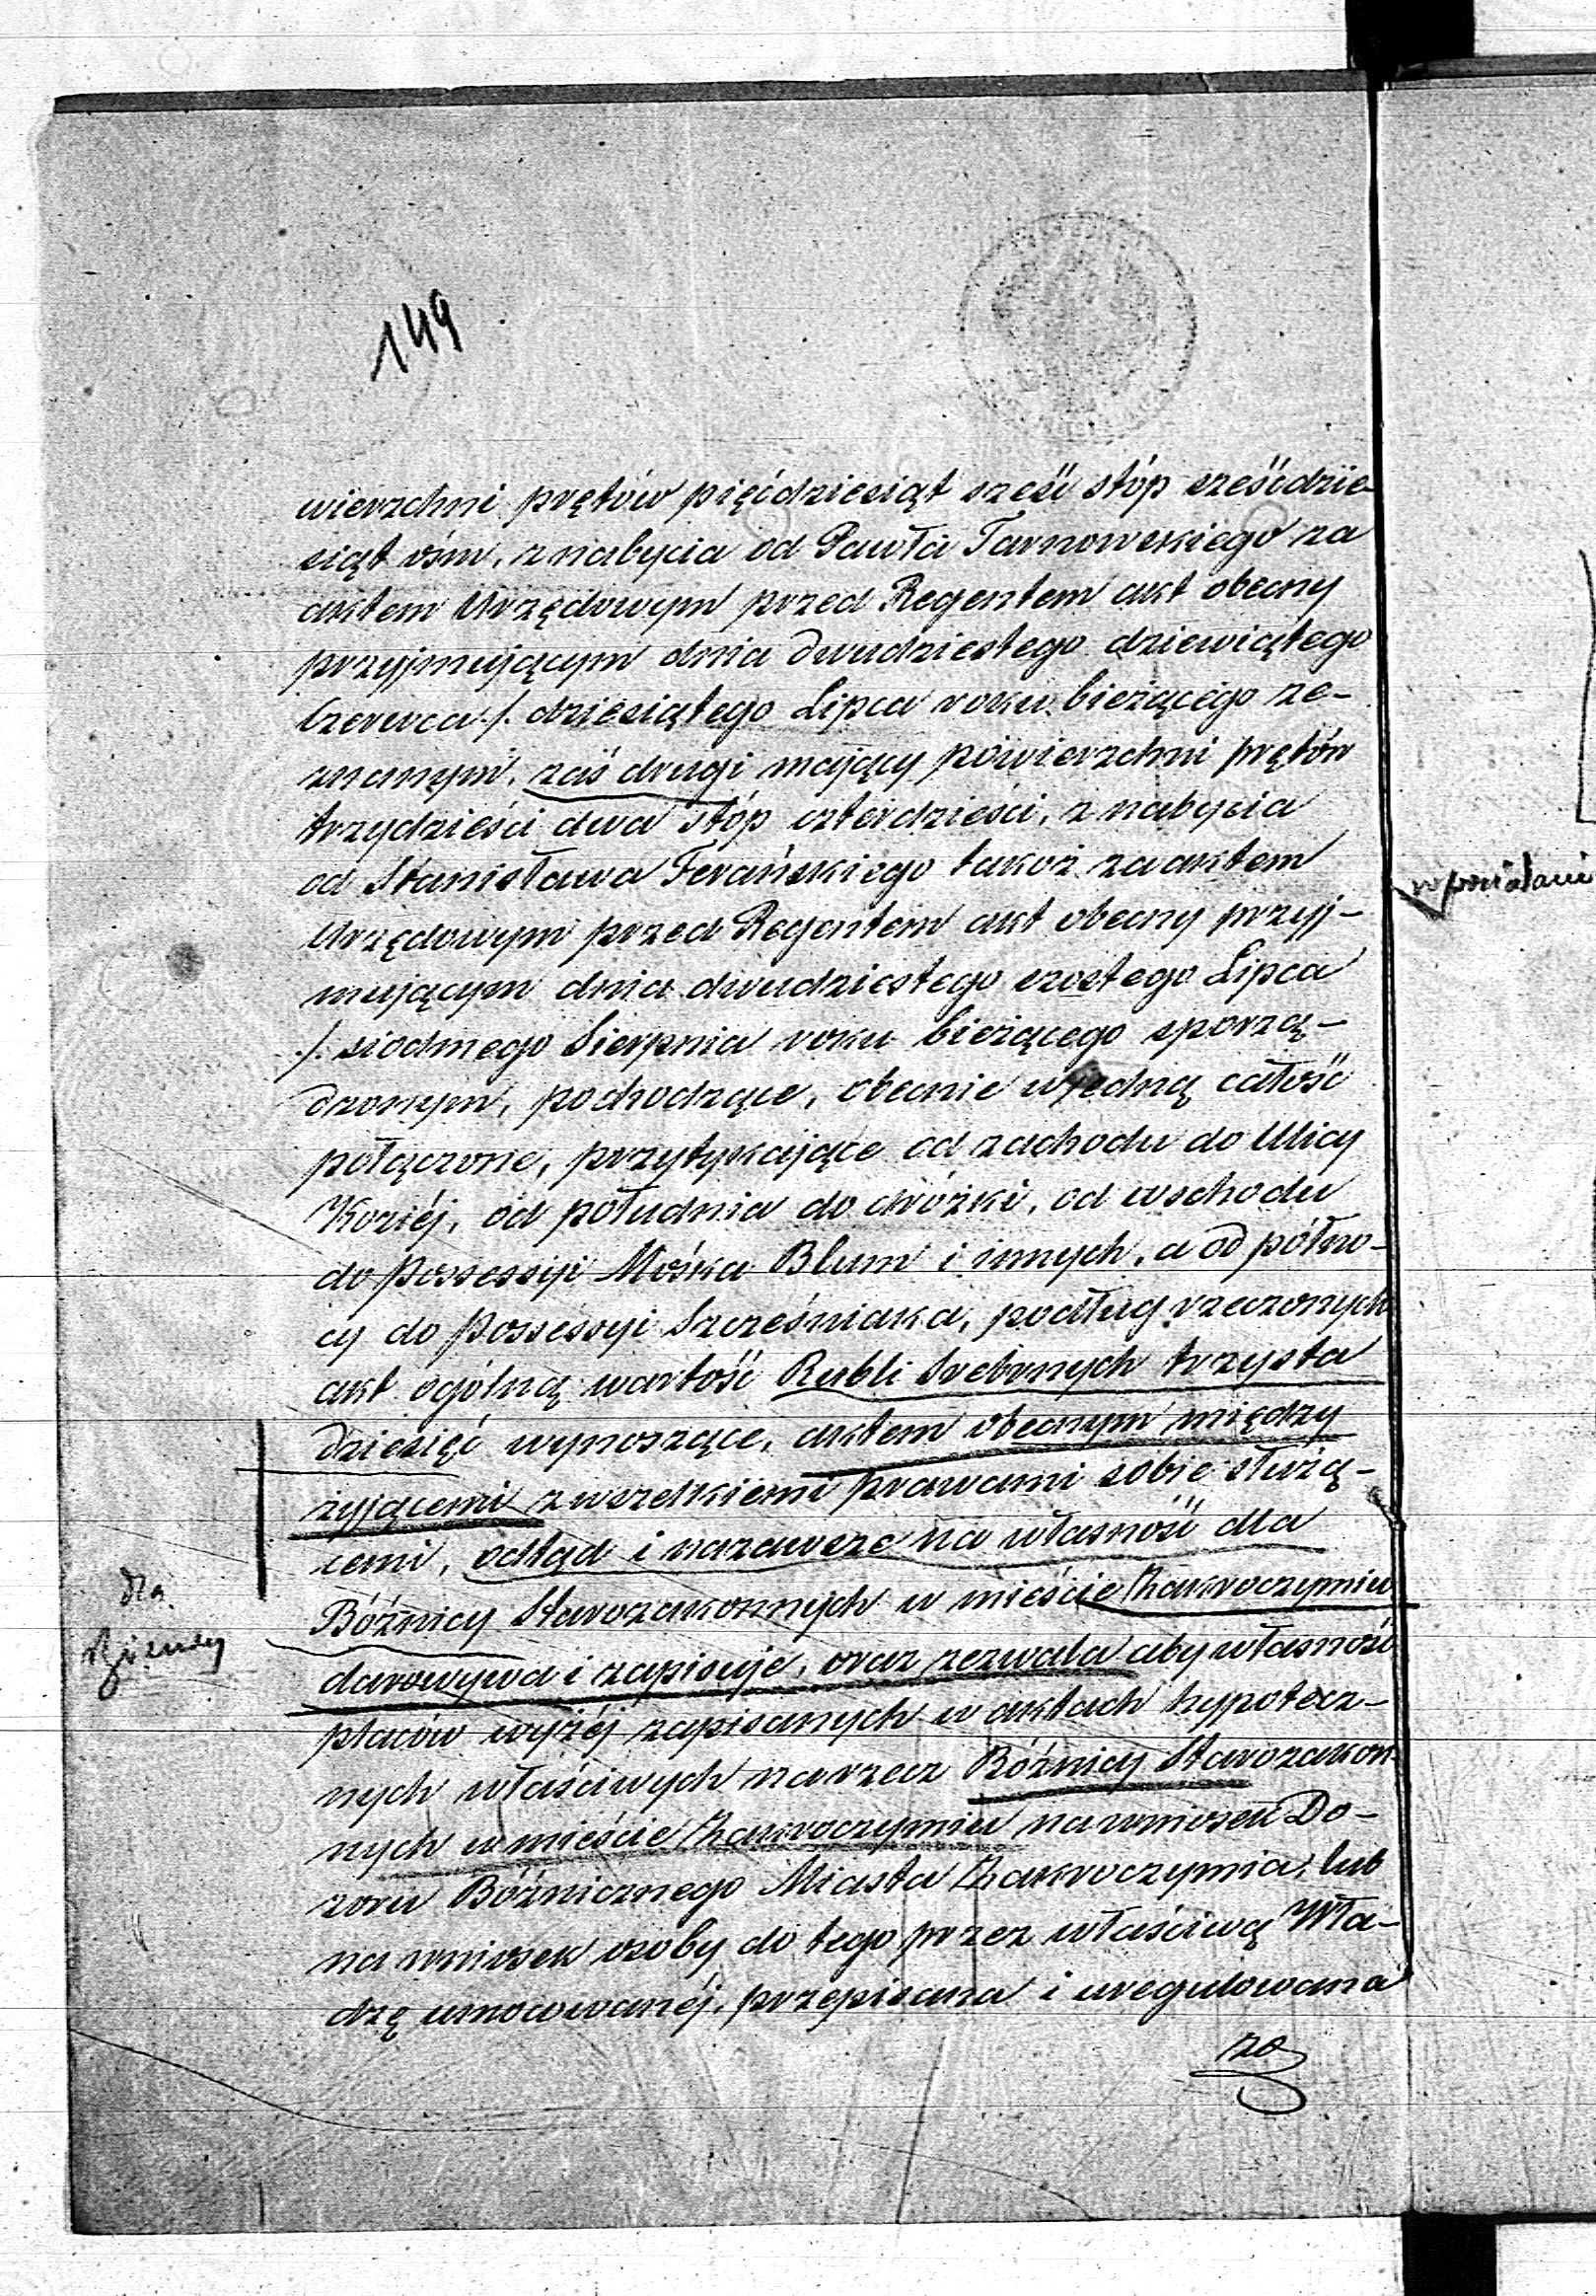 149
wierzchni prętów pięćdziesiąt sześć stóp sześćdzie-
siąt ośm, z nabycia od Pawła Tarnowskiego za
aktem Urzędowym przed Regentem akt obecny
przyjmującym dnia dwudziestego dziewiątego
Czerwca ./. dziesiątego Lipca roku bieżącego ze-
znanym, zaś drugi mający powierzchni prętów
trzydzieści dwa stóp czterdzieści, z nabycia
od Stanisława Ferańskiego takoż za aktem
Urzędowym przed Regentem akt obecny przyj-
mującym dnia dwudziestego szóstego Lipca
./. siódmego Sierpnia roku bieżącego sporzą-
dzonym, pochodzące, obecnie w jedną całość
połączone, przytykające od zachodu do Ulicy
Koziéj, od południa do dróżki, od wschodu
do possessyi Mośka Blum i innych, a od półno-
cy do possessyi Szcześniaka, podług rzeczonych
akt ogólną wartość Rubli Srebrnych trzysta
dziesięć wynoszące, aktem obecnym między
żyjącemi z wszelkiemi prawami sobie służą-
cemi, odtąd i nazawsze na własność dla
Bóżnicy Starozakonnych w mieście Zakroczymiu
darowywa i zapisuje, oraz zezwala aby własność
placów wyżéj zapisanych w aktach hypotecz-
nych właściwych na rzecz Bóżnicy Starozakon
nych w mieście Zakroczymiu na wniosek Do-
zoru Bóżnicznego Miasta Zakroczymia, lub
na wniosek osoby do tego przez właściwą Wła-
dzę umocowanéj, przepisana i uregulowana
dla